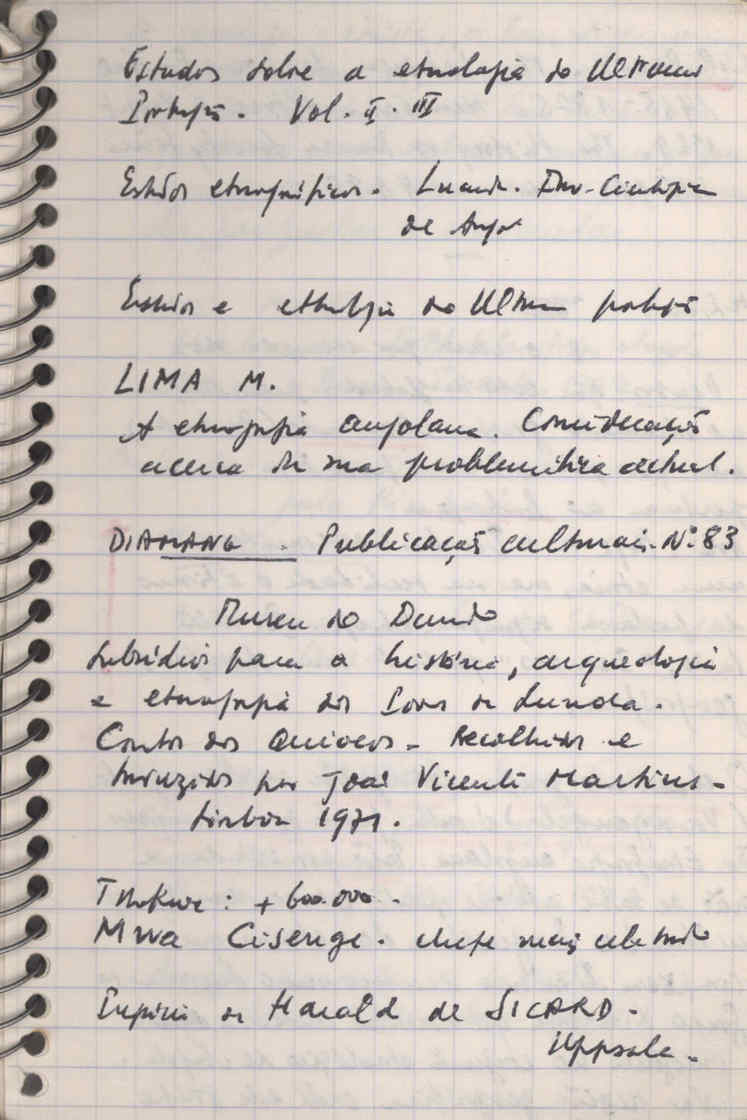 Estudos sobre a etnologia do Ultramar
Português. Vol. II. III
Estudos etnográficos. Luanda. Inv. Científica
de Angola
Estudos e etnologia do Ultramar português
LIMA M.
A etnografia angolana. Considerações
acerca da sua problemática actual.
DIAMANG. Publicações culturais. Nº 83
Museu do Dundo
Subsídios para a história, arqueologia
e etnografia dos Povos da Lunda.
Contos dos Quiocos - Recolhidos e
traduzidos por João Vicente Martins -
Lisboa 1971.
Tshokwe: + 600.000.
Mwa Cisenge. chefe mais celebrado
de Harald de SICARD.
Uppsala.